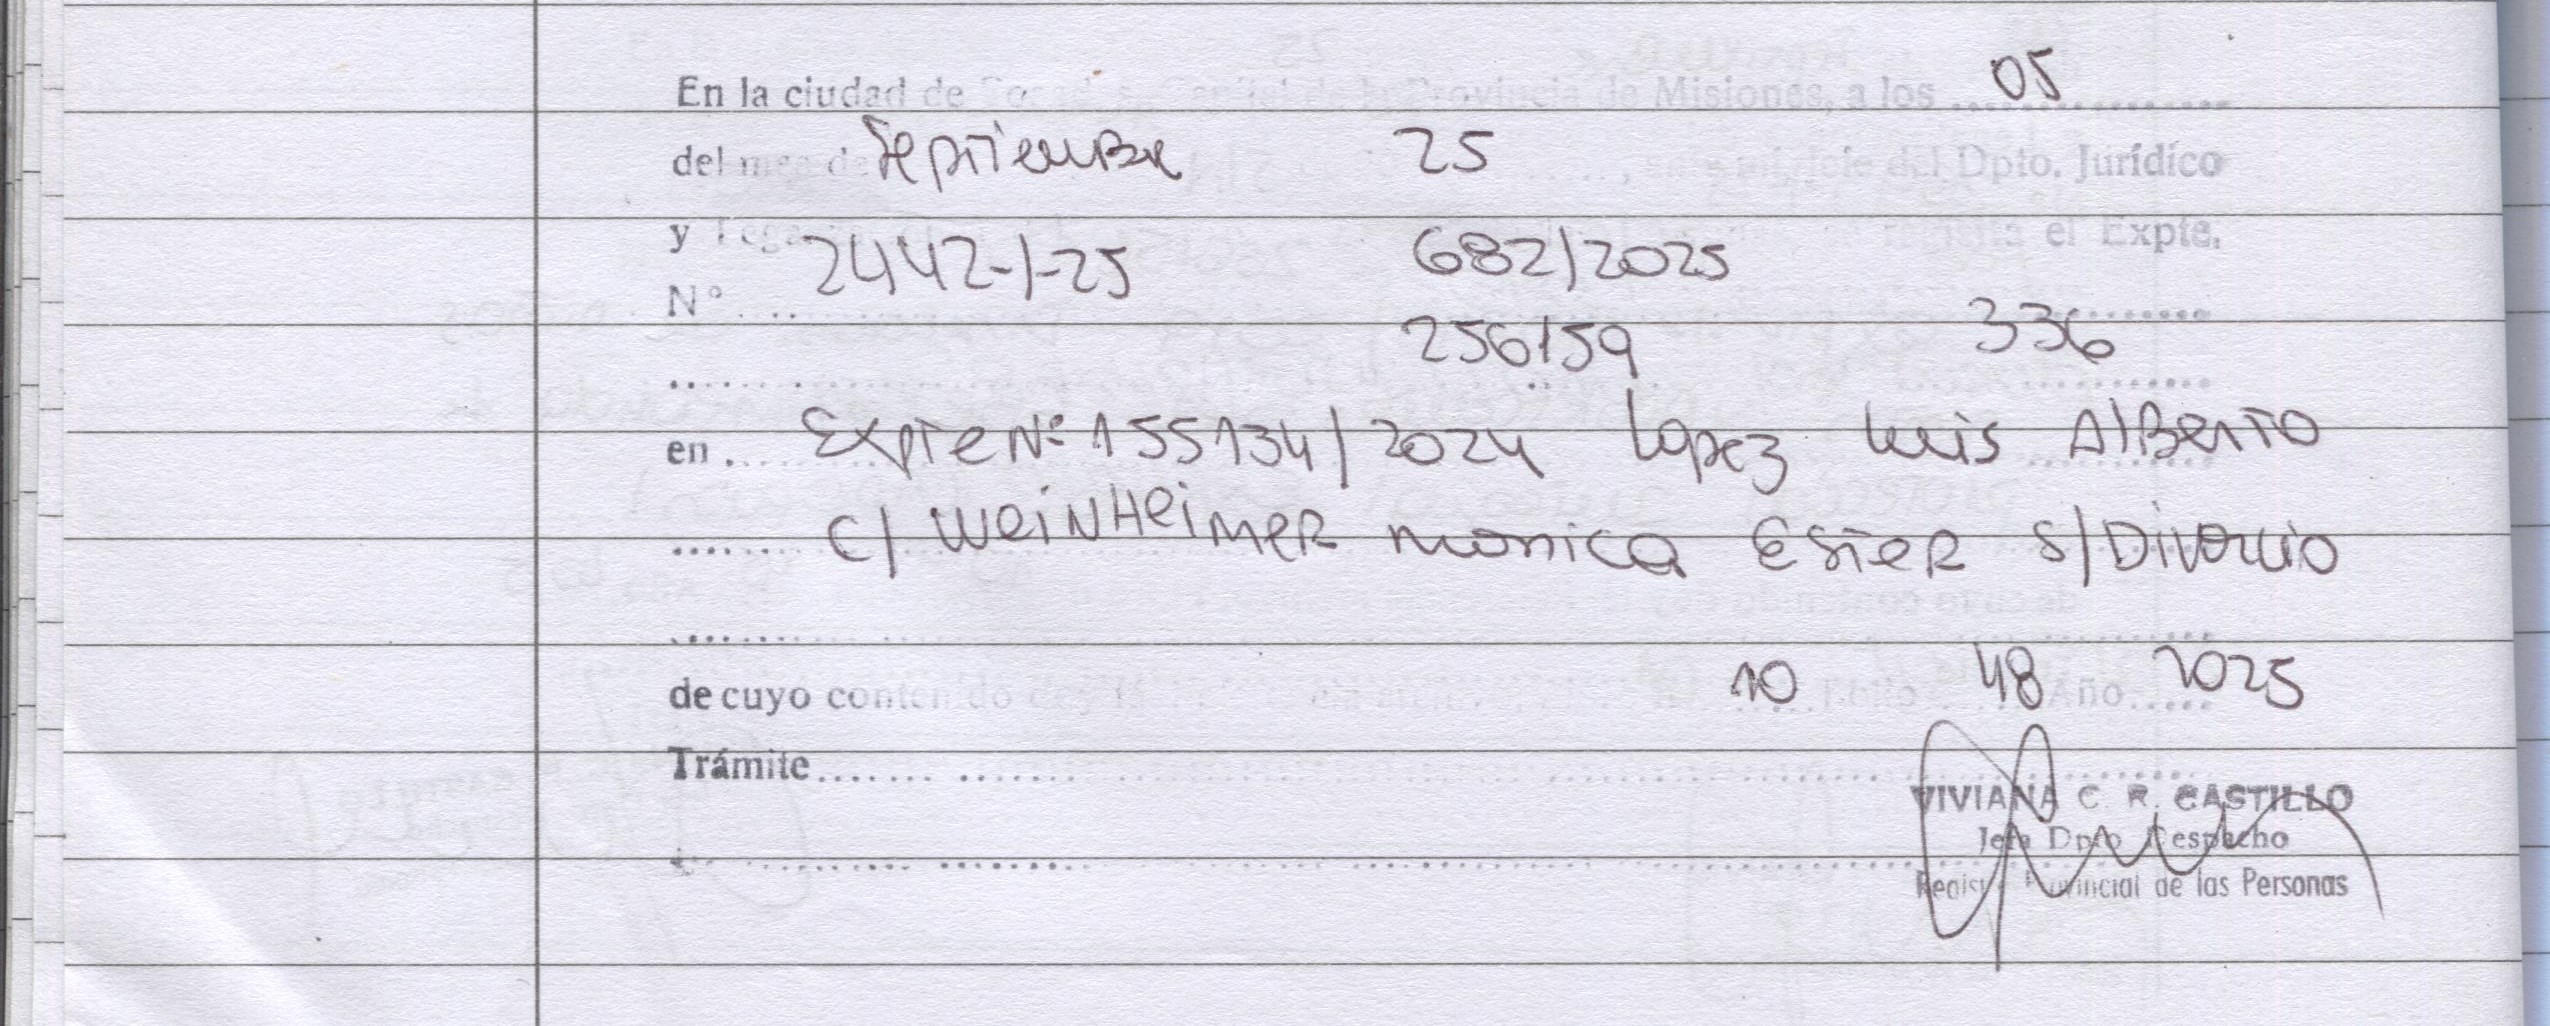 En la ciudad de Posadas, Capital de la Provincia de Misiones, a los 05
del mes de Septiembre 25 Dpto. Jurídico
y el Expte.
N° 2442-1-25 682/2025
256159 336
en Expte N° 155134/2024 Lopez Luis Alberto
c/ Weinheimer Monica Ester s/Divorcio
de cuyo contenido 10 Folio 48 Año 2025
Trámite
VIVIANA C. R. CASTILLO
Jefa Dpto Despacho
Registro Provincial de las Personas